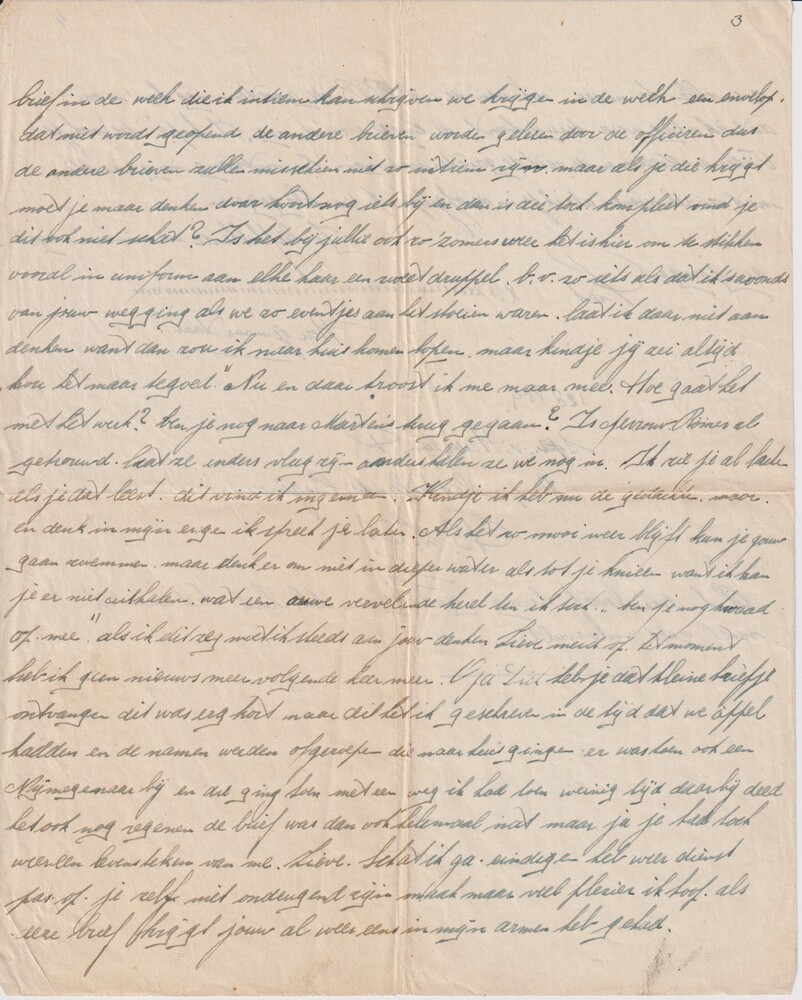 3
brief in de week die ik intiem kan schrijven we krijgen in de week een envelop.
dat niet wordt geopend de andere brieven worden gelesen door de officiren dus
de andere brieven zullen misschien niet zo intiem zijn. maar als je die krijgt
moet je maar denken daar hoort nog iets bij en dan is die toch kompleet vind je
dit ook niet schat? Is het bij jullie ook zo'zomers weer het is hier om te stikken
vooral in uniform aan elke haar een zweet druppel. b.v. zo iets als dat ik s'avonds
van jouw wegging als we zo eventjes aan het stoeien waren. laat ik daar niet aan
denken want dan zou ik naar huis komen lopen. maar kindje jij zei altijd
hou het maar tegoet." Nu en daar troost ik me maar mee. Hoe gaat het
met het werk? ben je nog naar Martens terug gegaan? Is Al
getrouwd. laat ze anders vlug zijn anders halen ze we nog in. Ik zie je al
als je dat leest. dit vind ik ingemeen. Kindje ik heb nu de
en denk in mijn eige ik spreek je later. Als het zo mooi weer blijft kun je gauw
gaan zwemmen. maar denk er om niet in dieper water als tot je knieen want ik kan
je er niet uithalen. wat een ouwe vervelende kerel ben ik toch.. ben je nog kwaad
op mee." als ik dit zeg moet ik steeds aan jouw denken Lieve meid op het moment
heb ik geen nieuws meer volgende keer meer. O ja heb je dat kleine briefje
ontvangen dit was erg kort maar dit heb ik geschreven in de tijd dat we appel
hadden en de namen werden afgeroepen die naar huis gingen er was toen ook een
Nijmegenaar bij en die ging toen met een weg ik had toen weinig tijd daarbij deed
het ook nog regenen de brief was dan ook helemaal nat maar ja je had toch
weer een levensteken van me. Lieve. Schat ik ga. eindigen heb weer dienst
pas. op. je zelf niet ondeugend zijn maak maar veel plezier ik hoop. als
deze brief krijgt jouw al weer eens in mijn armen heb gehad.